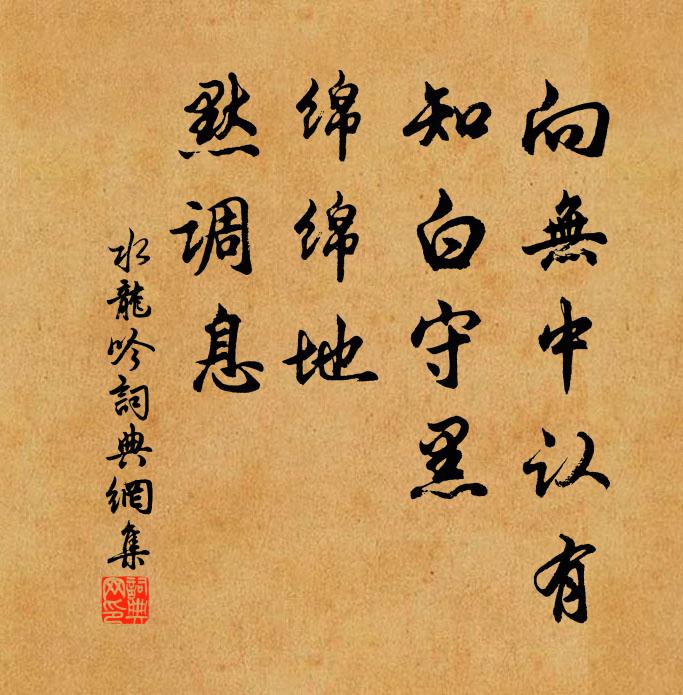 向無中认有
知白守黑
绵绵地
默调息
水龍吟詞典網集
詞典网印